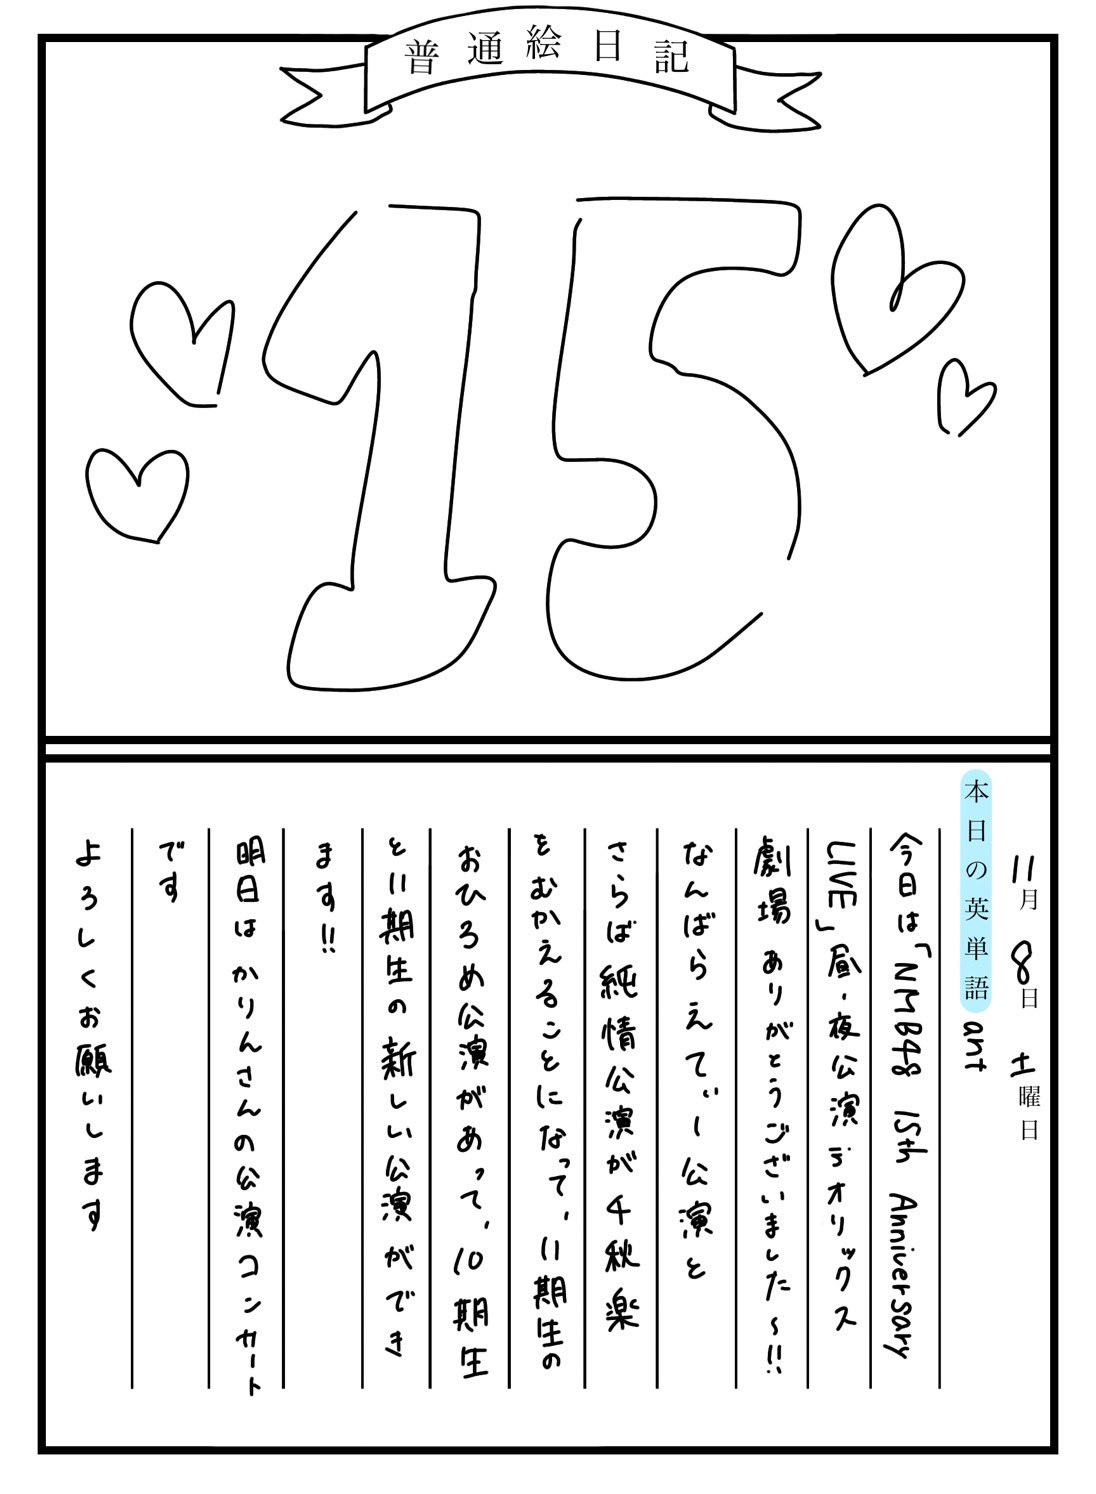 普通絵日記
11月 8日 土曜日
本日の英単語 ant
今日は「NMB48 15th Anniversary
LIVE」昼・夜公演 ラオリックス
劇場 ありがとうございました〜!!
なんばらえてぃー公演と
さらば純情公演が千秋楽
をむかえることになって、11期生の
おひろめ公演があって、10期生
と11期生の新しい公演ができ
ます!!
明日はかりんさんの公演コンサート
です
よろしくお願いします
15